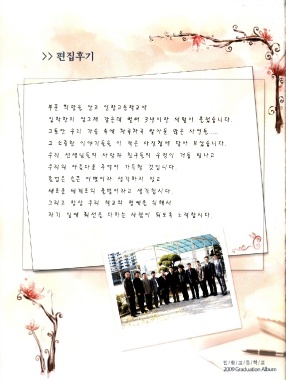 >> 편집후기
부푼 희망을 안고 인창고등학교에
입학한지 엊그제 같은데 벌써 3년이란 세월이 흘렀습니다.
그동안 우리 가슴 속에 차곡차곡 쌓아온 많은 사연들.....
그 소중한 이야기들을 이 작은 사진첩에 담아 보았습니다.
우리 선생님들의 사랑과 친구들의 우정이 것을 빛나고
우리의 아름다운 추억이 가득할 것입니다.
졸업은 슬픈 이별이라 생각하지 않고
새로운 세계로의 출발이라고 생각합시다.
그리고 항상 우리 학교의 명예를 위해서
자기 일에 최선을 다하는 사람이 되도록 노력합시다.
고등학교
2009 Graduation Album